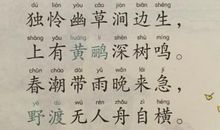 dú lián yōu cǎo jiàn biān shēng
独怜幽草涧边生，
shàng yǒu huáng lí shēn shù míng
上有黄鹂深树鸣。
chūn cháo dài yǔ wǎn lái jí
春潮带雨晚来急，
yě dù wú rén zhōu zì héng
野渡无人舟自横。